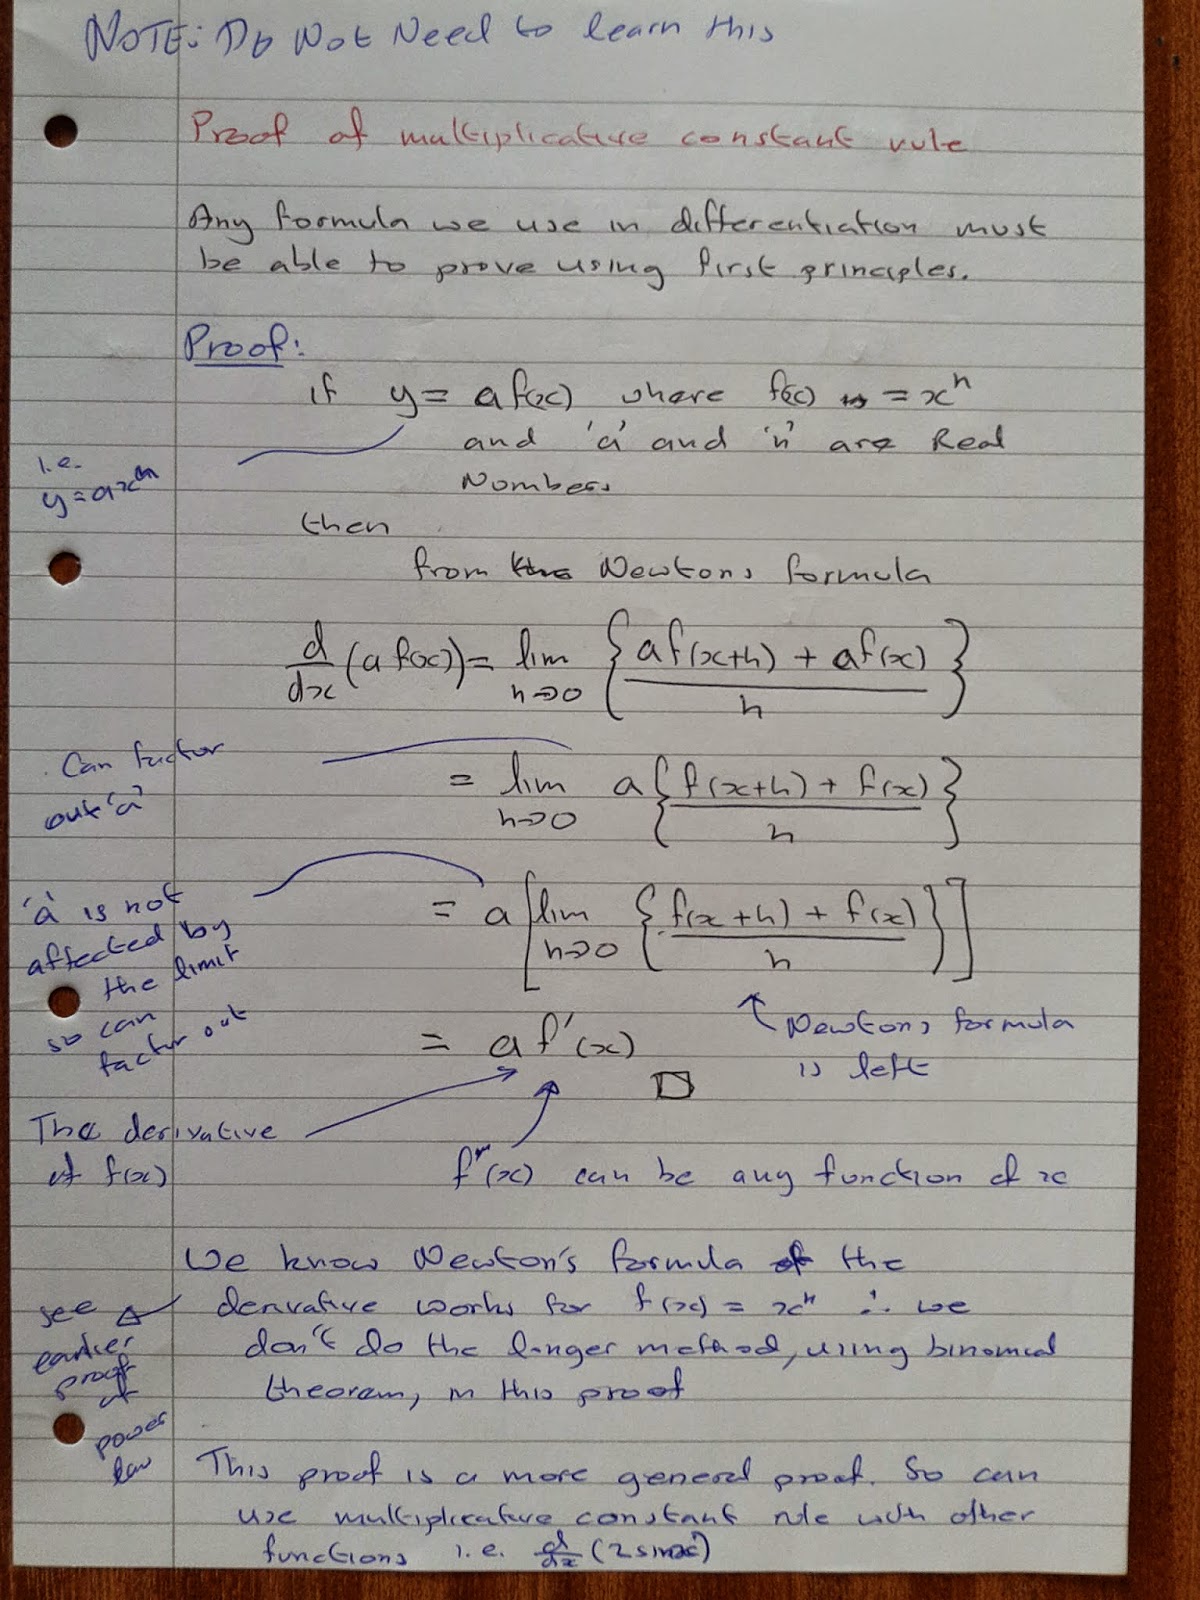 NOTE: Do Not Need to learn this
Proof of multiplicative constant rule
Any formula we use in differentiation must
be able to prove using first principles.
Proof:
if y = a f(x) where f(x) = xⁿ
and 'a' and 'n' are Real
Numbers
i.e.
y = axⁿ
then
from Newtons formula
d/dx (a f(x)) = lim h→0 { (a f(x+h) + a f(x)) / h }
Can factor
out 'a'
= lim h→0 a { (f(x+h) + f(x)) / h }
'a' is not
affected by
the limit
so can
factor out
= a [ lim h→0 { (f(x+h) + f(x)) / h } ]
↖ Newtons formula
is left
= a f'(x)
□
The derivative
of f(x)
f(x) can be any function of x
We know Newton's formula of the
derivative works for f(x) = xⁿ ∴ we
don't do the longer method, using binomial
theoram, in this proof
see
earlier
proof
of
power
law
This proof is a more general proof. So can
use multiplicative constant rule with other
functions i.e. d/dx (2 sinx)